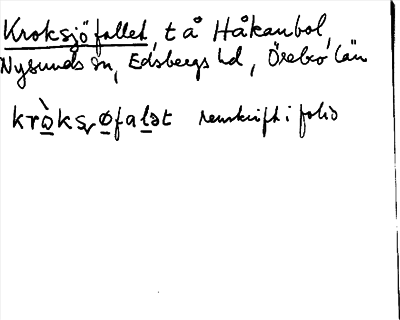 Kroksjöfallet, t å Håkanbol,
Nysunds sn, Edsbergs hd, Örebro län
krò̱ksꞈø̱fal̲ət renskrift i folio